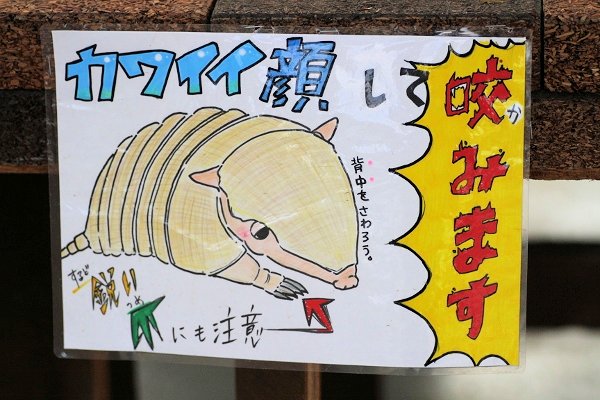 カワイイ顔して
咬みます
か
背中をさわろう。
するど
鋭い
つめ
爪にも注意